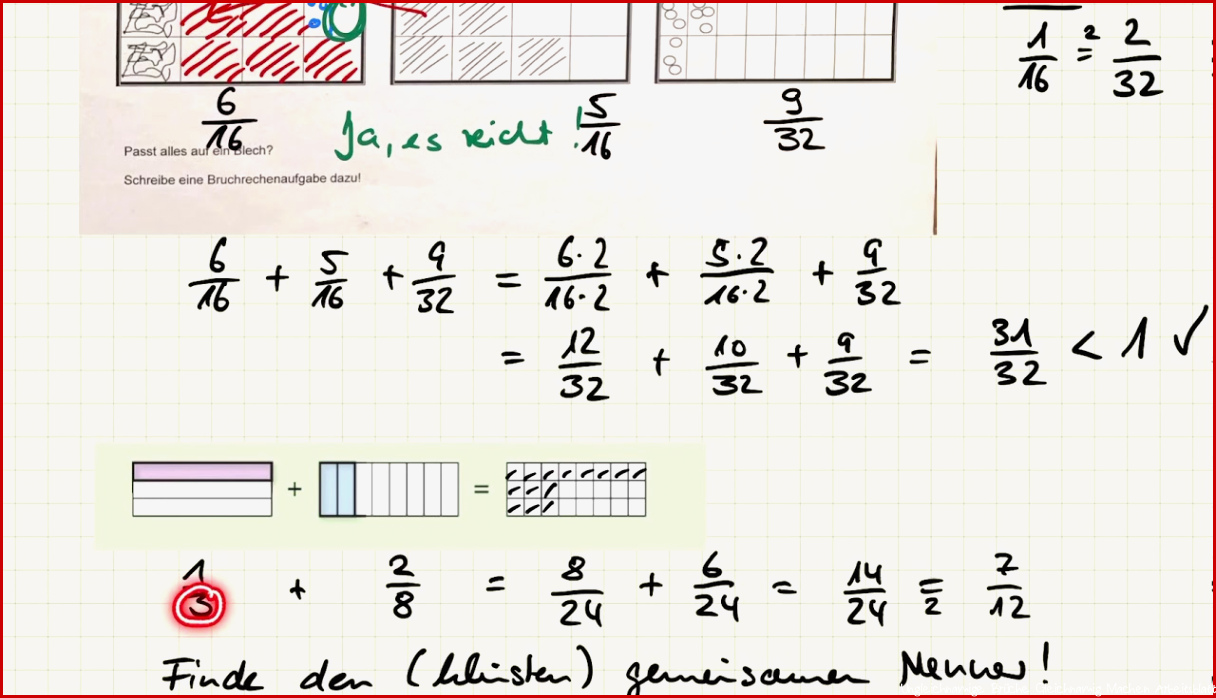 1/16 =² 2/32
6/16 Ja, es reicht! 5/16 9/32
Passt alles auf ein Blech?
Schreibe eine Bruchrechenaufgabe dazu!
6/16 + 5/16 + 9/32 = 6·2/16·2 + 5·2/16·2 + 9/32
= 12/32 + 10/32 + 9/32 = 31/32 < 1 ✓
+ =
1/3 + 2/8 = 8/24 + 6/24 = 14/24 =₂ 7/12
Finde den (kleinsten) gemeinsamen Nenner!